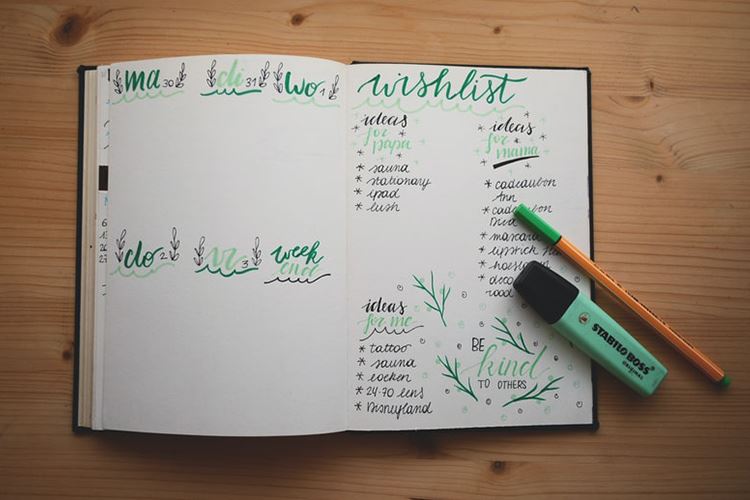 ma 30
di 31
wo 1
do 2
vr 3
week
end
wishlist
ideas
for
papa
* sauna
* stationary
* ipad
* lush
ideas
for
mama
* cadeaubon
Ann
* cadeaubon
* mascara
* lipstick
* deco
rood
ideas
for me
* tattoo
* sauna
* boeken
* 24-70 lens
* Disneyland
BE
kind
TO OTHERS
STABILO BOSS
ORIGINAL